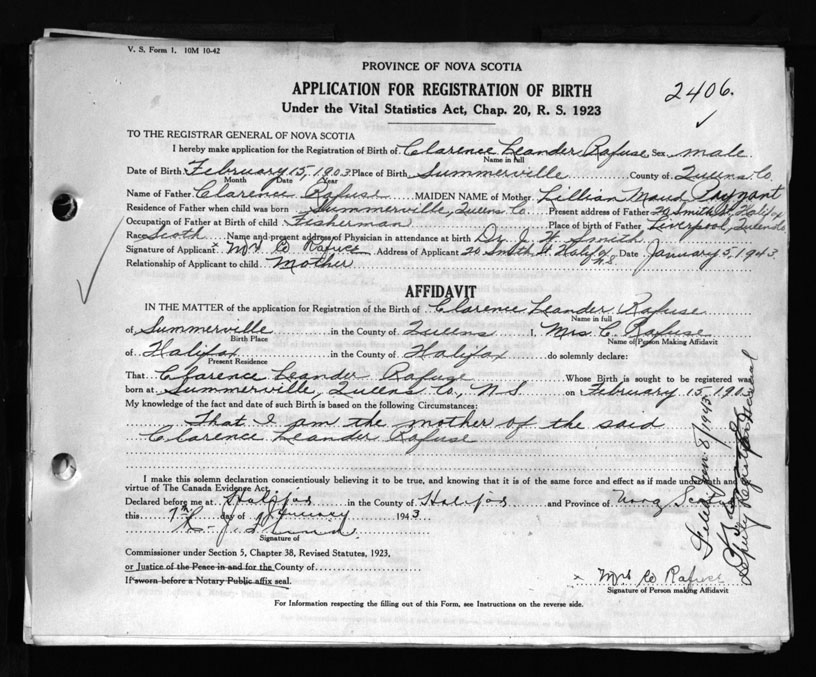 V. S. Form 1. 10M 10-42
PROVINCE OF NOVA SCOTIA
APPLICATION FOR REGISTRATION OF BIRTH
2406.
Under the Vital Statistics Act, Chap. 20, R. S. 1923
TO THE REGISTRAR GENERAL OF NOVA SCOTIA
I hereby make application for the Registration of Birth of Clarence Leander Rafuse Sex male
Name in full
Date of Birth February 15, 1903 Place of Birth Summerville County of Queens Co.
Month Date Year
Name of Father Clarence Rafuse MAIDEN NAME of Mother Lillian Maud
Residence of Father when child was born Summerville, Queens Co. Present address of Father 20 Smith St. Halifax
Occupation of Father at Birth of child Fisherman Place of birth of Father Liverpool,
Race Scoth Name and present address of Physician in attendance at birth Dr. J. Smith
Signature of Applicant x Mrs Co Rafuse Address of Applicant 20 Smith St. Halifax N.S. Date January 5, 1943.
Relationship of Applicant to child Mother
AFFIDAVIT
IN THE MATTER of the application for Registration of the Birth of Clarence Leander Rafuse
Name in full
of Summerville in the County of Queens I, Mrs. C. Rafuse
Birth Place Name of Person Making Affidavit
of Halifax in the County of Halifax do solemnly declare:
Present Residence
That Clarence Leander Rafuse Whose Birth is sought to be registered was
born at Summerville, Queens Co., N.S. on February 15 1903
My knowledge of the fact and date of such Birth is based on the following Circumstances:
That I am the mother of the said
Clarence Leander Rafuse
I make this solemn declaration conscientiously believing it to be true, and knowing that it is of the same force and effect as if made under oath and
virtue of The Canada Evidence Act.
Declared before me at Halifax in the County of Halifax and Province of Nova
this 7th day of January 1943
Signature of
Commissioner under Section 5, Chapter 38, Revised Statutes, 1923,
or Justice of the Peace in and for the County of
If sworn before a Notary Public affix seal.
x Mrs Co Rafuse
Signature of Person making Affidavit
For Information respecting the filling out of this Form, see Instructions on the reverse side.
Filed Jan. 8/1943.
Deputy Registrar General